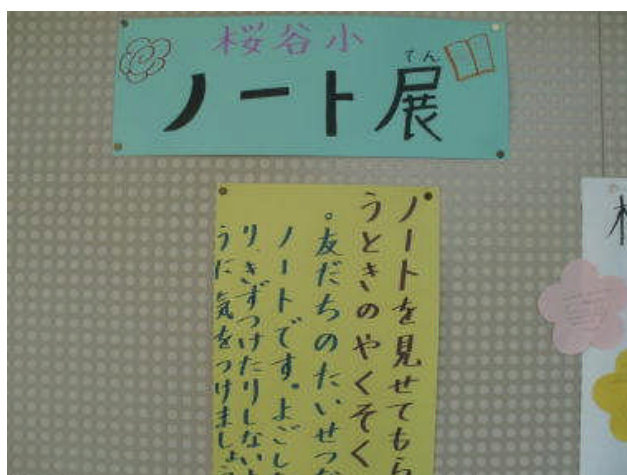 桜谷小
てん
ノート展
ノートを見せてもら
うときのやくそく
。友だちのたいせつな
ノートです。よごした
り、きずつけたりしないよ
うに気をつけましょう